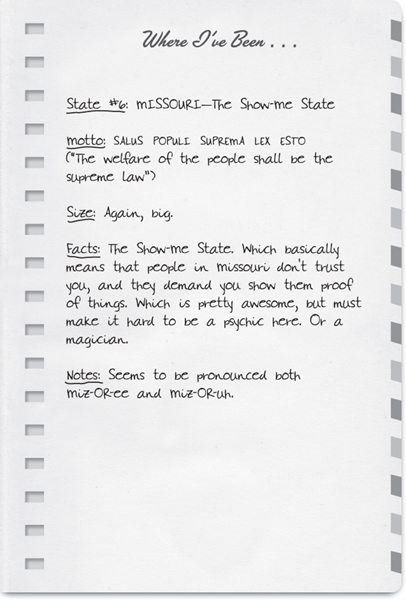 Where I've Been . . .
State #6: MISSOURI—The Show-me State
motto: SALUS POPULI SUPREMA LEX ESTO
("The welfare of the people shall be the
supreme law")
Size: Again, big.
Facts: The Show-me State. Which basically
means that people in missouri don't trust
you, and they demand you show them proof
of things. Which is pretty awesome, but must
make it hard to be a psychic here. Or a
magician.
Notes: Seems to be pronounced both
miz-OR-ee and miz-OR-uh.